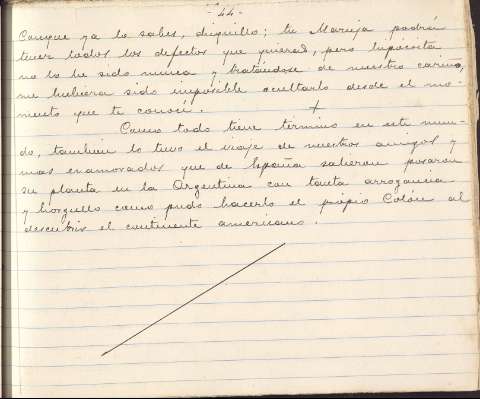 -44-
Conque ya lo sabes, dieguillo; tu Maruja podrá
tener todos los defectos que quieras, pero hipócrita
no lo he sido nunca y tratándose de nuestro cariño,
me hubiera sido imposible ocultarlo desde el mo-
mento que te conocí. +
Como todo tiene término en este mun-
do, tambien lo tuvo el viaje de nuestros amigos y
mas enamorados que de España salieron posaron
su planta en la Argentina con tanta arrogancia
y horgullo como pudo hacerlo el propio Colón al
descubrir el continente americano.